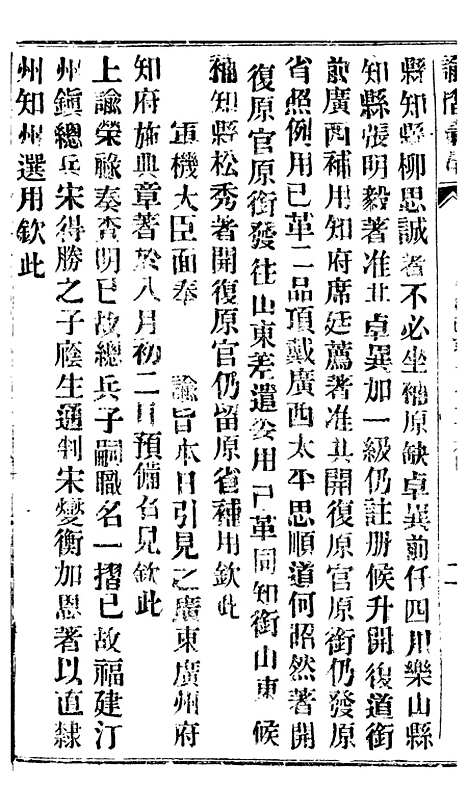 諭摺彙存
縣知縣柳思誠著不必坐補原缺卓異前任四川樂山縣
知縣張明毅著准其卓異加一級仍註册候升開復道銜
前廣西補用知府席廷薦著准其開復原官原銜仍發原
省照例用已革二品頂戴廣西太平思順道何昭然著開
復原官原銜發往山東差遣委用已革同知銜山東候
補知縣松秀著開復原官仍留原省補用欽此
軍機大臣面奉 諭旨本日引見之廣東廣州府
知府施典章著於八月初二日預備召見欽此
上諭榮祿奏查明已故總兵子嗣職名一摺已故福建汀
州鎮總兵宋得勝之子廕生通判宋夔衡加恩著以直隸
州知州選用欽此